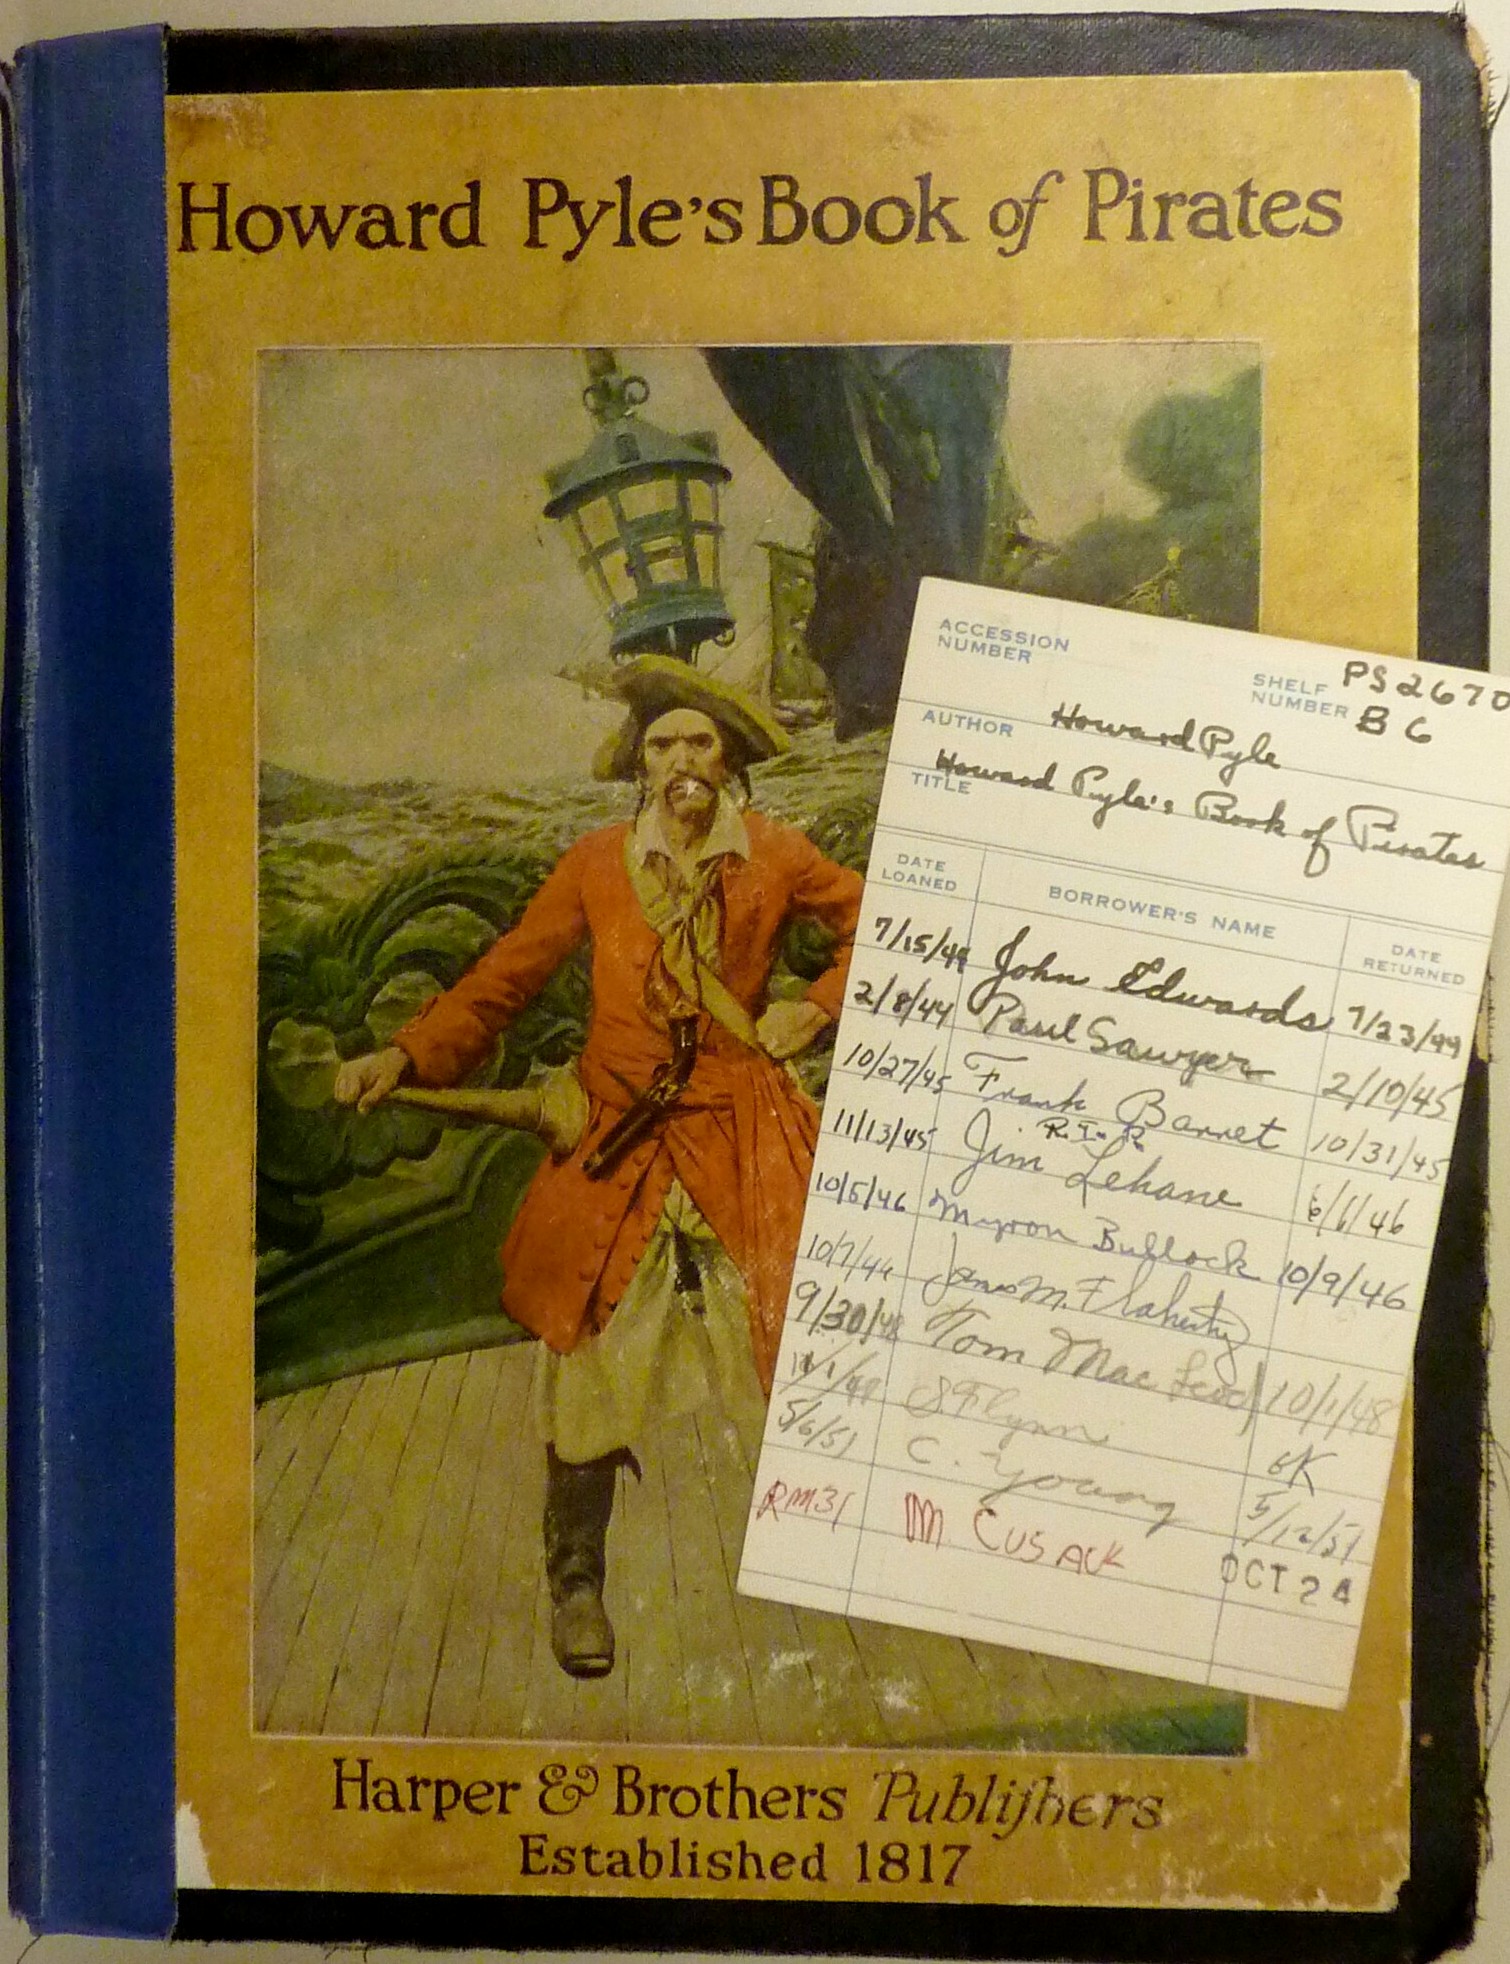 Howard Pyle's Book of Pirates
ACCESSION
NUMBER
SHELF
NUMBER
PS2670
B6
AUTHOR
Howard Pyle
TITLE
Howard Pyle's Book of Pirates
DATE
LOANED
BORROWER'S NAME
DATE
RETURNED
7/15/44 John Edwards 7/23/44
2/8/44 Paul Sawyer 2/10/45
10/27/45 Frank Barret 10/31/45
R.I.P.
11/13/45 Jim Lehane 6/6/46
10/5/46 Myron Bullock 10/9/46
James M. Flaherty
9/30/48 Tom Mac Leod 10/1/48
S Flynn OK
5/6/51 C. Young 5/12/51
RM31 M CUSACK OCT 24
Harper & Brothers Publishers
Established 1817